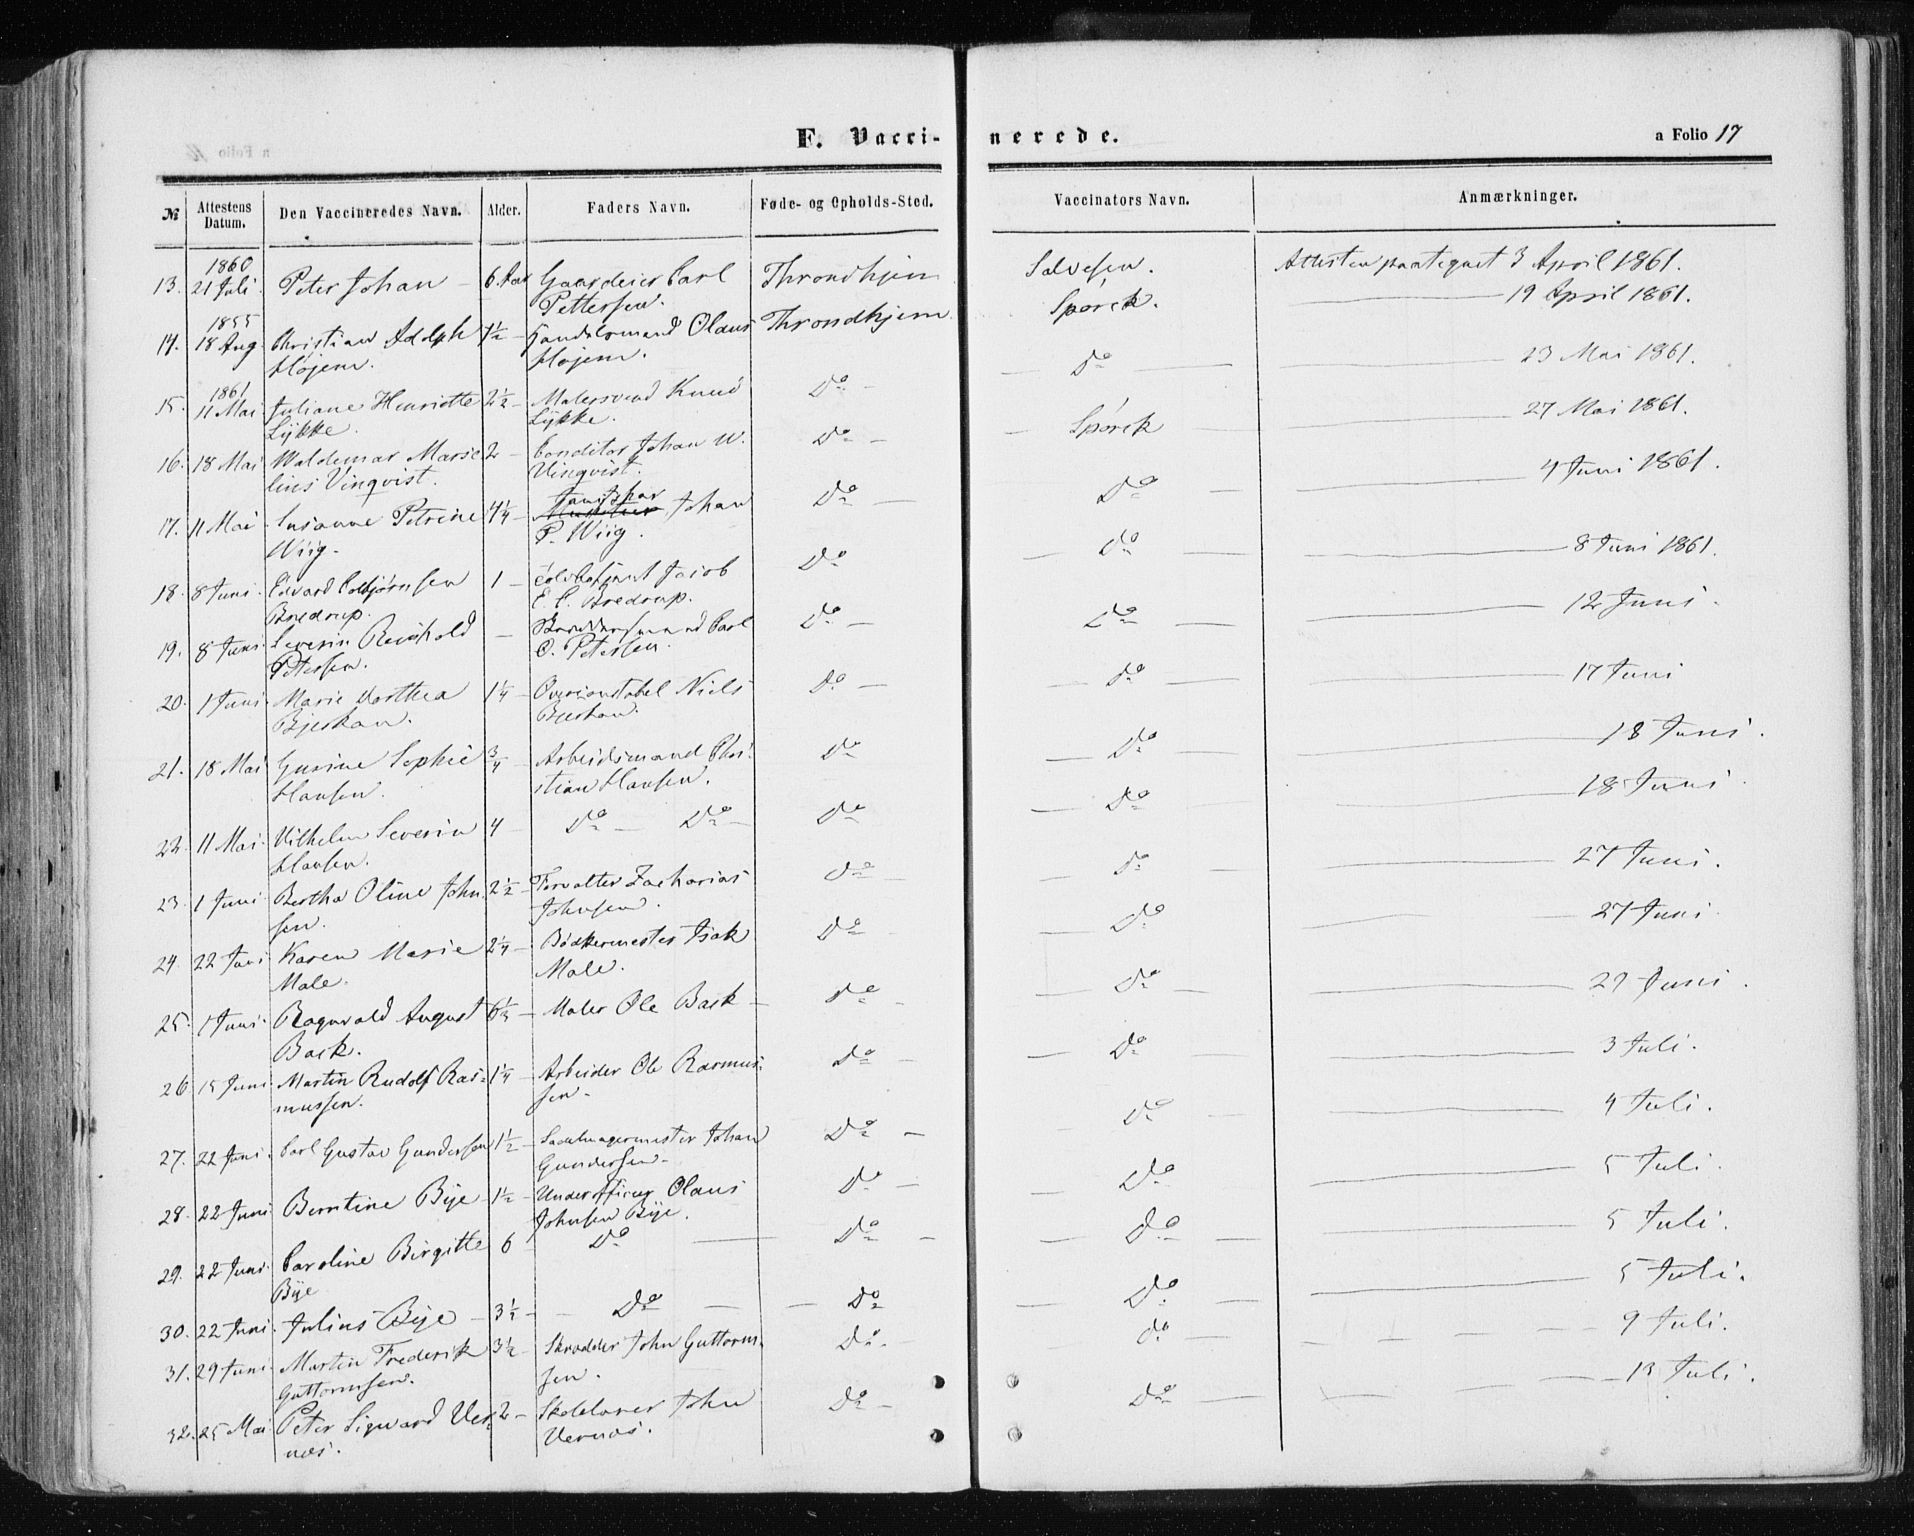 F. Vacci-nerede.
a Folio 17
№ | Attestens Datum. | Den Vaccineredes Navn. | Alder. | Faders Navn. | Føde- og Opholds-Sted. | Vaccinators Navn. | Anmærkninger.
13. | 1860 21 Juli. | Peter Johan | 6 Aar | Gaardeier Carl Pettersen. | Throndhjem | Salvesen. | Attesten paategnet 3 April 1861.
14. | 1855 18 Aug. | Christian Adolph Højem. | 1½ | Handelsmand Olaus Højem. | Throndhjem | Spørck. | 19 April 1861.
15. | 1861 11 Mai | Juliane Henriette Lykke. | 2½ | Malersvend Knud Lykke. | Do | Do | 23 Mai 1861.
16. | 18 Mai | Waldemar Marselius Vinqvist. | 2 | Conditor Johan W. Vinqvist. | Do | Spørck | 27 Mai 1861.
17. | 11 Mai | Susanne Petrine Wiig. | 4¼ | Johan P. Wiig. | Do | Do | 4 Juni 1861.
18. | 8 Juni. | Edvard Colbjørnsen Bredrup. | 1 | Jacob E. C. Bredrup. | Do | Do | 8 Juni 1861.
19. | 8 Juni. | Severin Reinhold Petersen. | – | Carl O. Petersen. | Do | Do | 12 Juni.
20. | 1 Juni. | Marie Dorthea Bjerkan. | 1¼ | Overconstabel Niels Bjerkan. | Do | Do | 17 Juni
21. | 18 Mai | Gurine Sophie Hansen. | ¾ | Arbeidsmand Christian Hansen. | Do | Do | 18 Juni.
22. | 11 Mai. | Vilhelm Severin Hansen. | 4 | Do Do | Do | Do | 18 Juni.
23. | 1 Juni. | Bertha Oline Johnsen. | 2½ | Forvalter Zacharias Johnsen. | Do | Do | 27 Juni.
24. | 22 Juni | Karen Marie Male. | 2¼ | Bødkermester Isak Male. | Do | Do | 27 Juni.
25. | 1 Juni. | Ragnvald August Back. | 6½ | Maler Ole Back | Do | Do | 29 Juni.
26. | 15 Juni | Martin Rudolf Rasmussen. | 1¼ | Arbeider Ole Rasmussen. | Do | Do | 3 Juli.
27. | 22 Juni. | Carl Gustav Gundersen | 1½ | Sadelmagermester Johan Gundersen. | Do | Do | 4 Juli.
28. | 22 Juni | Berntine Bye | 1½ | Underofficer Olaus Johnsen Bye. | Do | Do | 5 Juli.
29. | 22 Juni. | Caroline Birgitte Bye | 6 | Do | Do | Do | 5 Juli.
30. | 22 Juni. | Julius Bye | 3½ | Do | Do | Do | 5 Juli.
31. | 29 Juni. | Martin Frederik Guttormsen. | 3½ | Skrædder John Guttormsen. | Do. | do | 9 Juli.
32. | 25 Mai | Peter Sigward Vernæs. | 2 | Skolelærer John Vernæs. | Do | Do | 13 Juli.